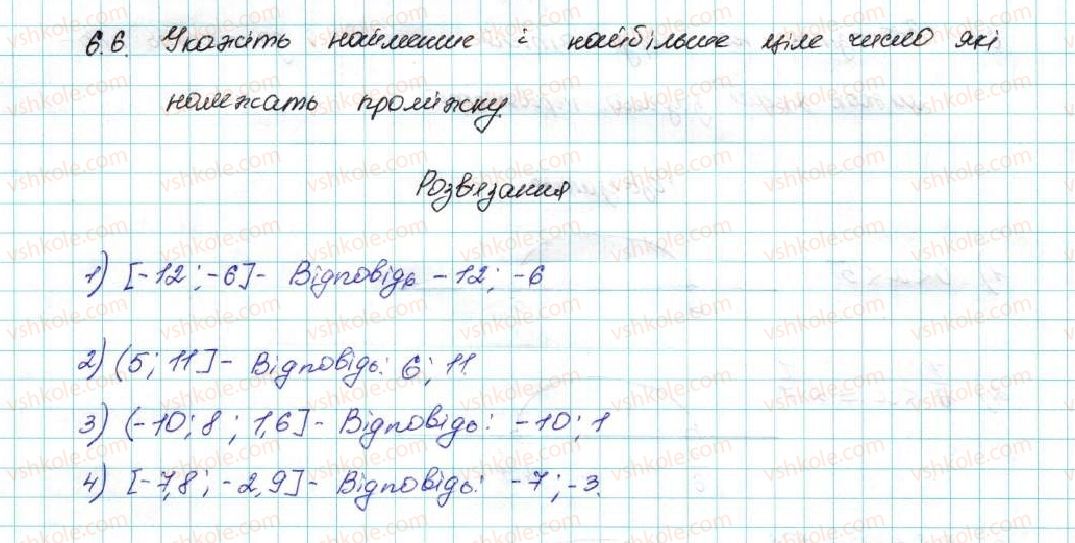 6.6. Укажіть найменше і найбільше ціле число які
належать проміжку.
Розвязання
1) [-12; -6] - Відповідь -12; -6
2) (5; 11] - Відповідь: 6; 11.
3) (-10; 8; 1,6] - Відповідь: -10; 1
4) [-7,8; -2,9] - Відповідь: -7; -3.
vshkole.com